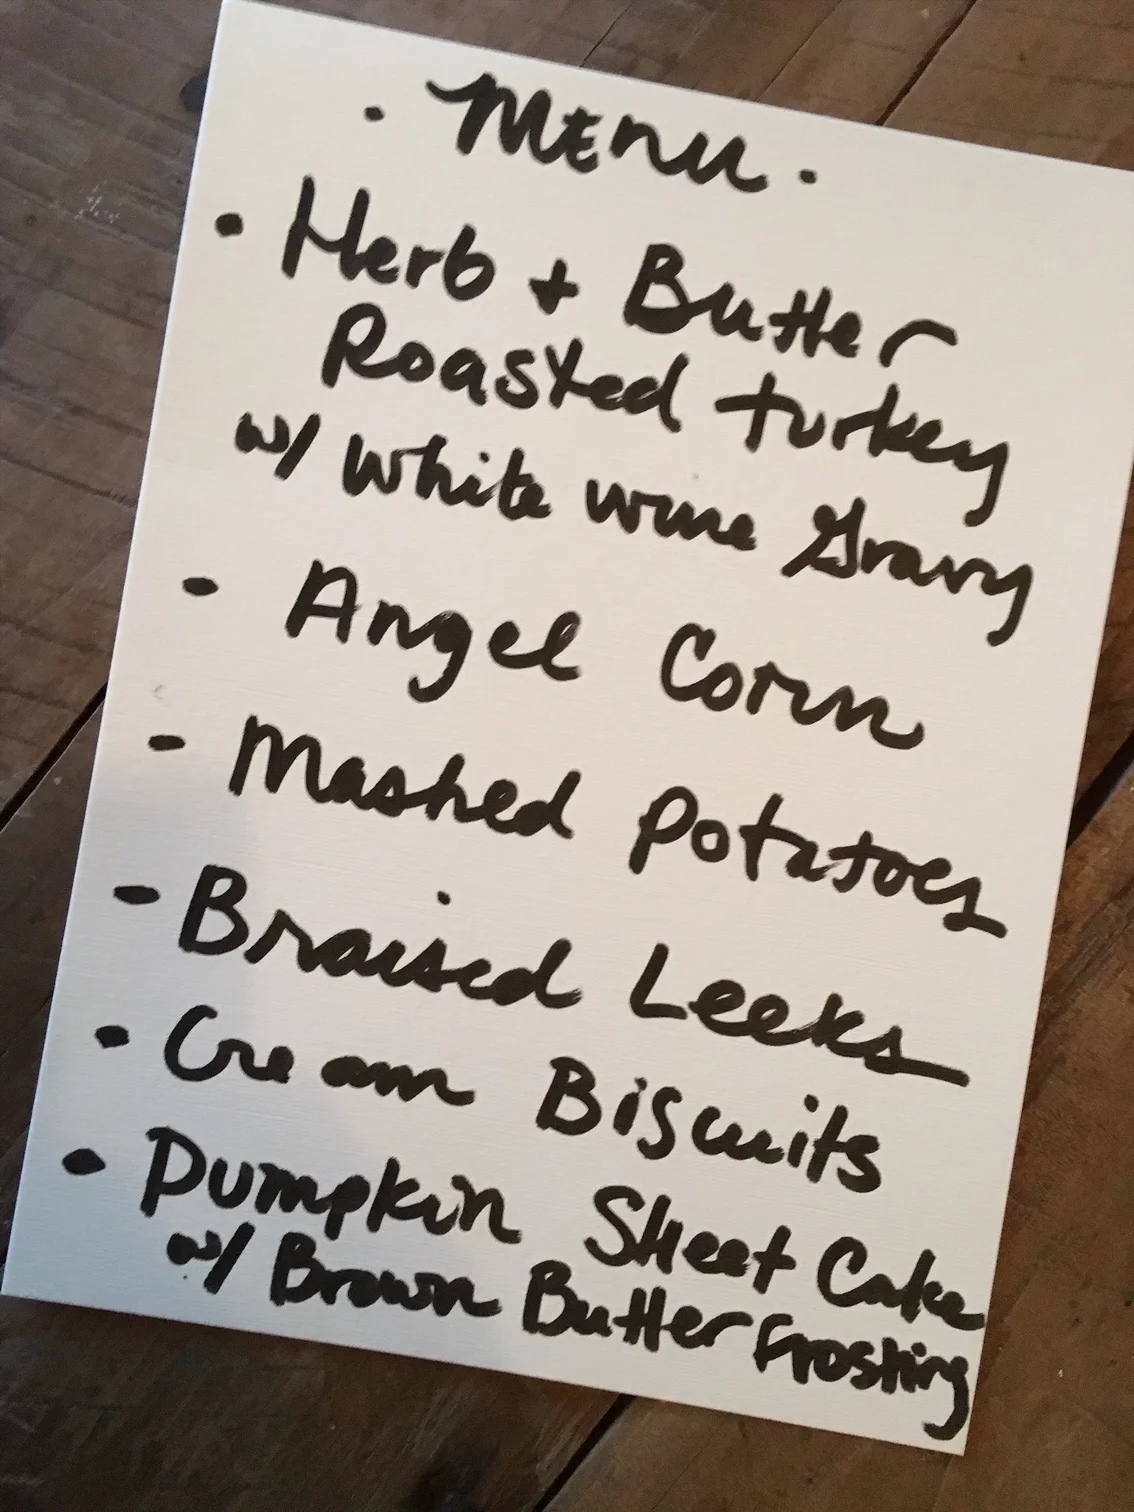 · Menu ·
• Herb + Butter
Roasted turkey
w/ White wine Gravy
- Angel Corn
- Mashed potatoes
- Braised Leeks
• Cream Biscuits
• Pumpkin Sheet Cake
w/ Brown Butter Frosting